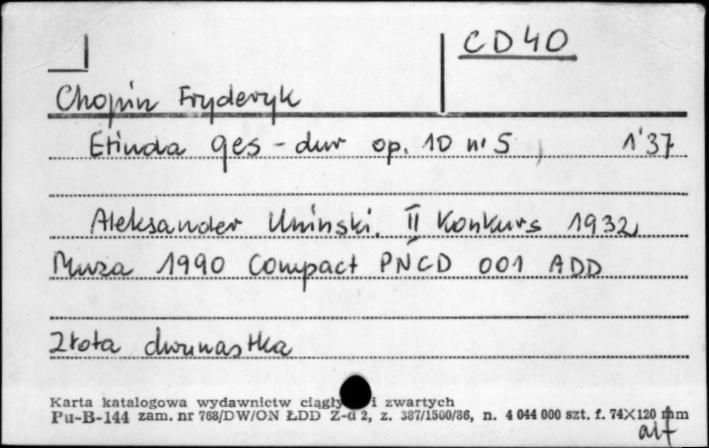 CD40
Chopin Fryderyk
Etiuda ges-dur op. 10 nr 5 1'37
Aleksander Uniński. II Konkurs 1932
Muza 1990 Compact PNCD 001 ADD
Złota dwunastka
Karta katalogowa wydawnictw ciągły i zwartych
Pu-B-144 zam. nr 768/DW/ON ŁDD Z-d 2, z. 387/1500/86, n. 4 044 000 szt. f. 74X120 mm